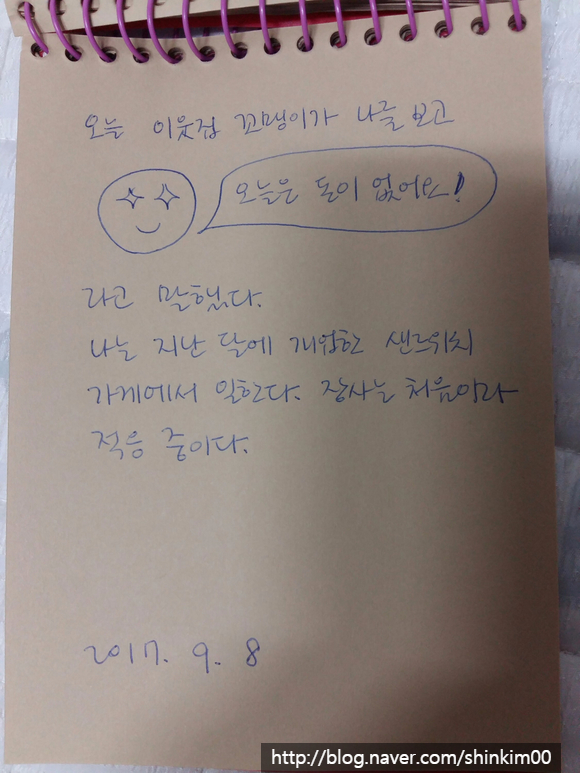 오늘 이웃집 꼬맹이가 나를 보고
오늘은 돈이 없어요!
라고 말했다.
나는 지난 달에 개업한 샌드위치
가게에서 일한다. 장사는 처음이라
적응 중이다.
2017. 9. 8
http://blog.naver.com/shinkim00